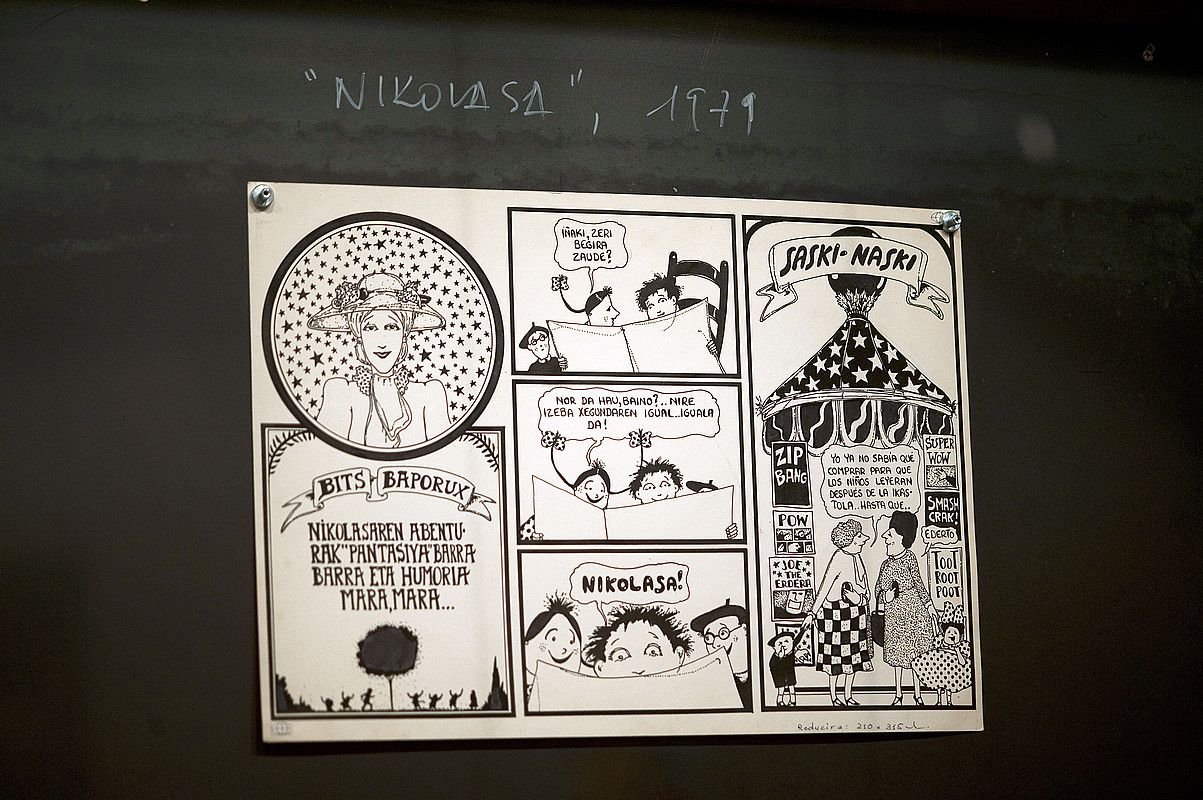 "NIKOLASA", 1979
BITS BAPORUX
NIKOLASAREN ABENTU-
RAK "PANTASIYA" BARRA
BARRA ETA HUMORIA
MARA, MARA...
IÑAKI, ZERI
BEGIRA
ZAUDE?
NOR DA HAU, BAINO?.. NIRE
IZEBA XEGUNDAREN IGUAL.. IGUALA
DA!
NIKOLASA!
SASKI-NASKI
ZIP
BANG
POW
JOE
THE
ERDERA
YO YA NO SABÍA QUE
COMPRAR PARA QUE
LOS NIÑOS LEYERAN
DESPUÉS DE LA IKAS-
TOLA.. HASTA QUE..
SUPER
WOW
SMASH
CRAK!
EDERTO
TOOT
ROOT
POOT
Reducira: 210 x 315